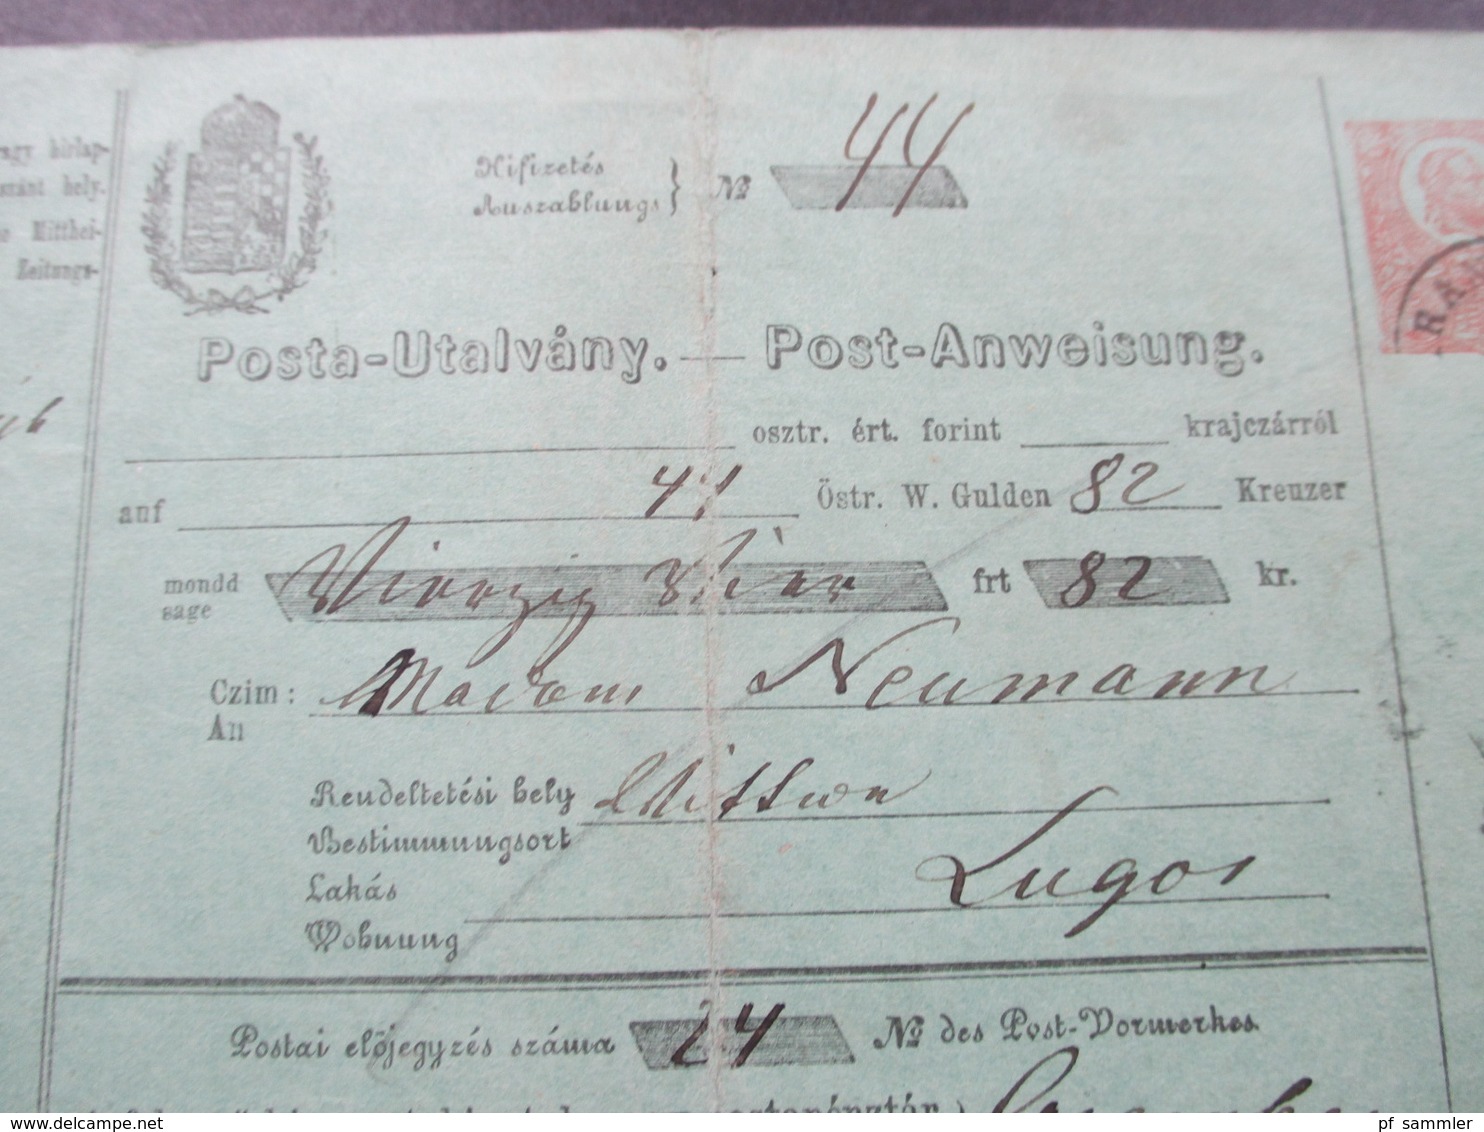 agy hirlap-
szánt hely.
e Mitthei-
Zeitungs-
Kifizetés
Auszahlungs } № 44
Posta-Utalvány. — Post-Anweisung.
osztr. ért. forint krajczárról
auf 44 Östr. W. Gulden 82 Kreuzer
mondd
sage Vierzig Vier frt 82 kr.
Czim: Madam Neumann
An
Rendeltetési hely
Bestimmungsort
Lakás Lugos
Wohnung
Postai előjegyzés száma 24 № des Post-Vormerkes.
pf_sammler
delcampe.net